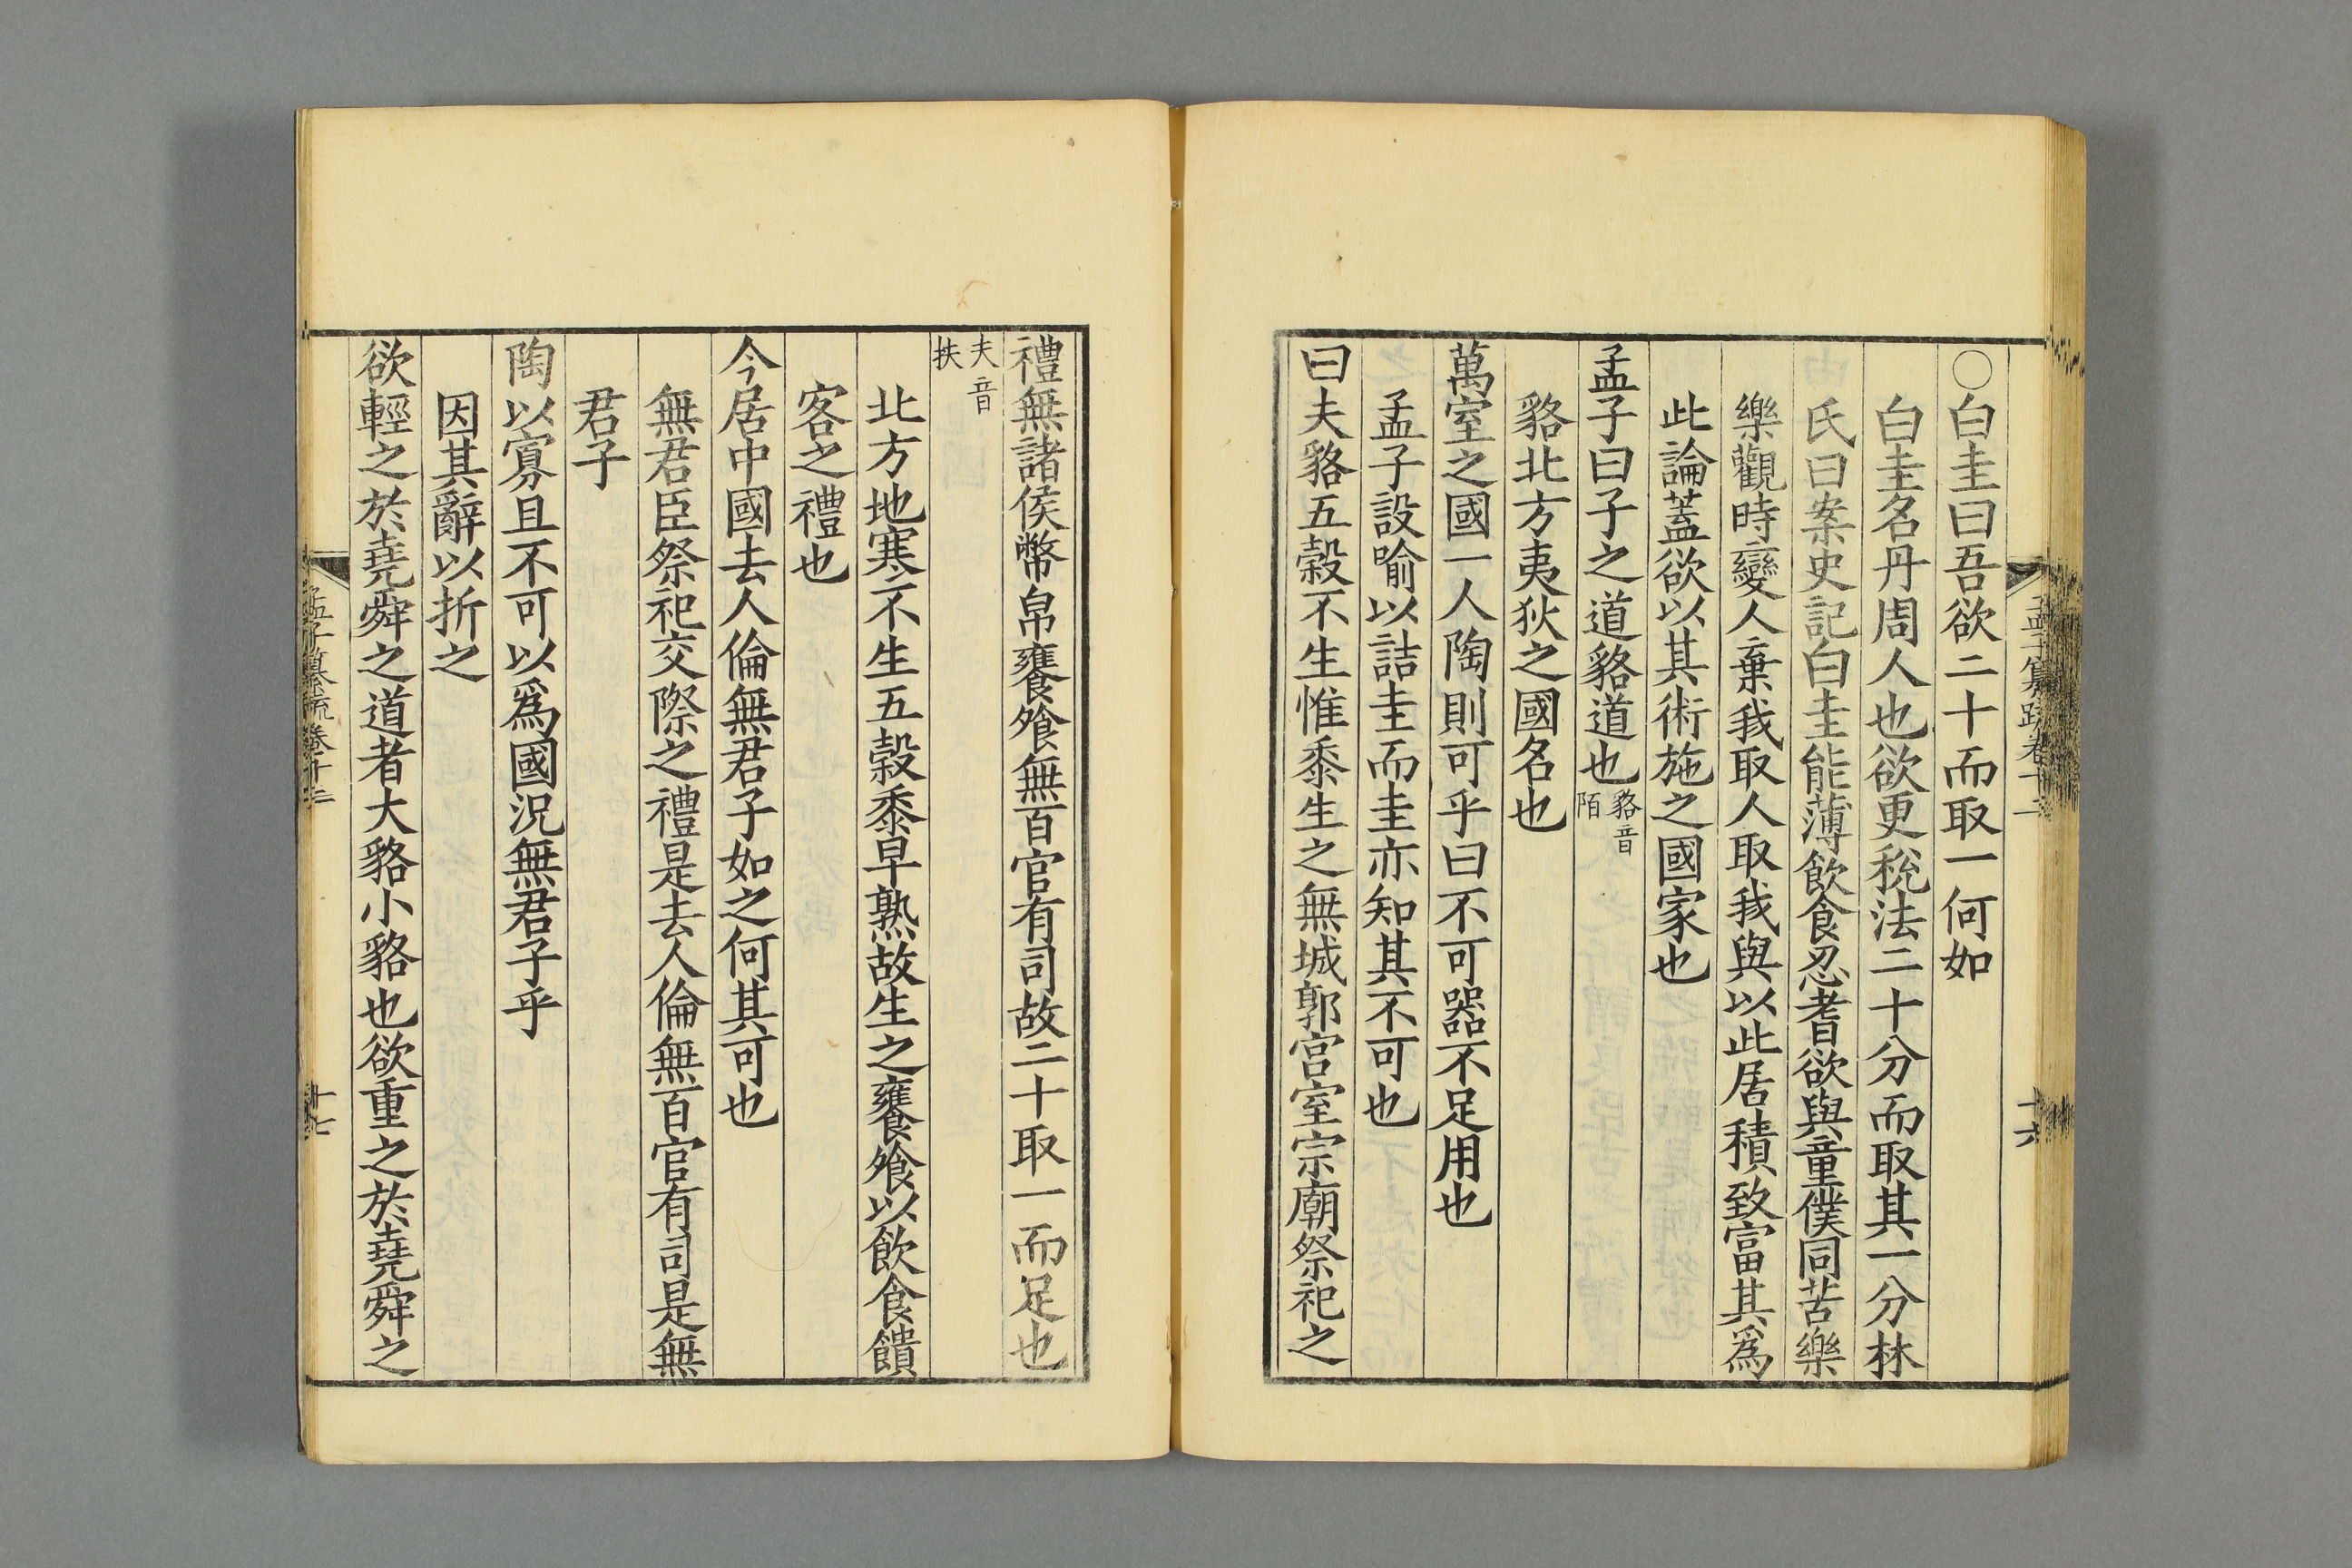 孟子纂疏卷十二
十六
○白圭曰吾欲二十而取一何如
白圭名丹周人也欲更稅法二十分而取其一分林
氏曰案史記白圭能薄飲食忍耆欲與童僕同苦樂
樂觀時變人棄我取人取我與以此居積致富其爲
此論蓋欲以其術施之國家也
孟子曰子之道貉道也貉音陌
貉北方夷狄之國名也
萬室之國一人陶則可乎曰不可器不足用也
孟子設喻以詰圭而圭亦知其不可也
曰夫貉五穀不生惟黍生之無城郭宮室宗廟祭祀之
禮無諸侯幣帛饔飧無百官有司故二十取一而足也
夫音扶
北方地寒不生五穀黍早熟故生之饔飧以飲食饋
客之禮也
今居中國去人倫無君子如之何其可也
無君臣祭祀交際之禮是去人倫無百官有司是無
君子
陶以寡且不可以爲國況無君子乎
因其辭以折之
欲輕之於堯舜之道者大貉小貉也欲重之於堯舜之
孟子纂疏卷十二
十七